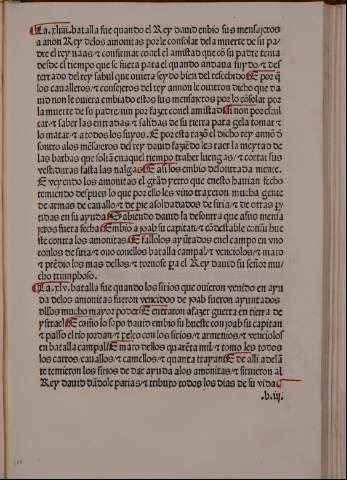 La .xliiii. batalla fue quando el Rey dauid enbio sus mensajeros
a anon Rey delos amonitas por le consolar dela muerte de su pa-
dre el rey naas/ ⁊ confirmar conel el amistad que cõ su padre tenia
desde el tiempo que se fuera para el quando andaua fuydo ⁊ des
terrado del rey sahul que ouiera seydo bien del rescebido E por q̃
los caualleros/ ⁊ consejeros del rey annon le ouieron dicho que da
uid non le ouiera embiado estos sus mensajeros por lo cõsolar por
la muerte de su padre nin por fazer conel amistad si non por escul
car ⁊ saber las entradas ⁊ salidas de su tierra para gela tomar ⁊
lo matar ⁊ a todos los suyos. E por esta razõ el dicho rey annõ d
sonrro alos mẽsajeros del rey dauid faziẽdo les raer la meytad de
las barbas que soliã enaquel tiempo traher luengas/ ⁊ cortar sus
vestiduras fasta las nalgas E asi los embio desonrrada mente.
E veyendo los amonitas el grãd yerro que enesto hauian fecho
temiendo despues lo que por ello les vino traxeron mucha gente
de armas de cauallo/ ⁊ de pie asoldadados de siria/ ⁊ de otras p̱
tidas en su ayuda Sabiendo dauid la desonrra que asus mensa
jeros fuera fecha Embio a joab su capitan/ ⁊ cõdestable conĩu hue
ste contra los amonitas E fallolos ayũtados enel campo en vno
conlos de siria/ ⁊ ouo conellos batalla campal/ ⁊ venciolos/ ⁊ ma
to ⁊ prẽdio los mas dellos/ ⁊ tornose pa el Rey dauid su señor mu-
cho triumphoso.
La .xlv. batalla fue quando los sirios que ouieron venido en ayu
da delos amonitas fueron vencidos de joab fueron ayuntados
dllos mucho mayor poder E entraron afazer guerra en tierra de
ysrael E como lo sopo dauid embio su hueste con joab su capitan
⁊ passo el rio jordan/ ⁊ peleo con los sirios/ ⁊ armenios/ ⁊ venciolos
en batalla campal E mato dellos quarẽta mil/ ⁊ tomo les todos
los carros/ cauallos/ ⁊ camellos/ ⁊ quanta trayan E de alli adelã
te temieron los sirios de dar ayuda alos amonitas/ ⁊ siruieron al
Rey dauid dãdole parias/ ⁊ tributo todos los dias de su vida
.b.iij.